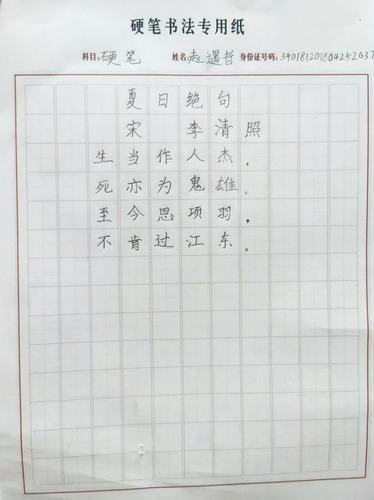 硬笔书法专用纸
科目: 硬笔 姓名: 赵遇哲 身份证号码: 340181201804252637
夏日绝句
宋 李清照
生当作人杰,
死亦为鬼雄.
至今思项羽,
不肯过江东.